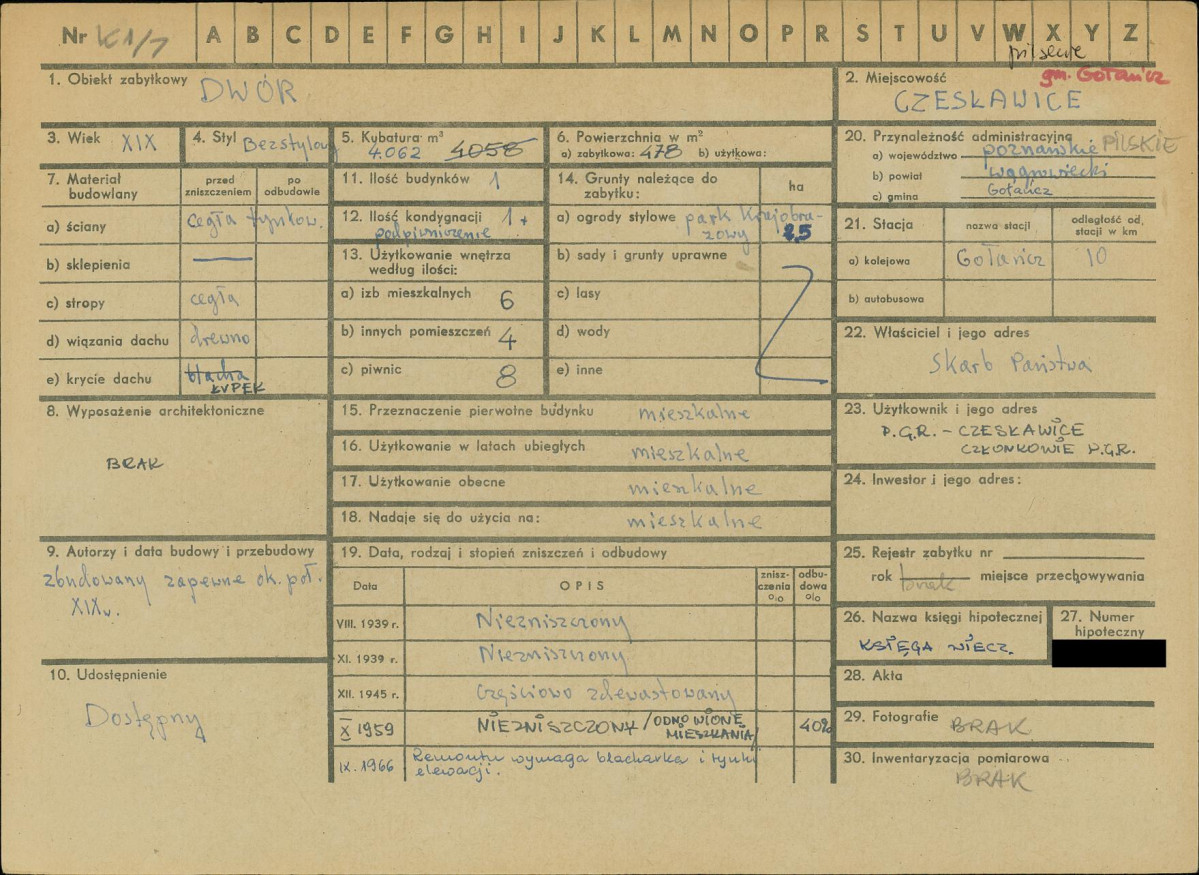 Nr K1/1 A B C D E F G H I J K L M N O P R S T U V W X Y Z
pilskie
gm. Gołańcz
1. Obiekt zabytkowy DWÓR
2. Miejscowość
CZESŁAWICE
3. Wiek XIX
4. Styl Bezstylowy
5. Kubatura m³
4.062 4058
6. Powierzchnia w m²
a) zabytkowa: 478 b) użytkowa:
7. Materiał budowlany
przed zniszczeniem
po odbudowie
a) ściany cegła tynkow.
b) sklepienia —
c) stropy cegła
d) wiązania dachu drewno
e) krycie dachu blacha
ŁUPEK
8. Wyposażenie architektoniczne
BRAK
9. Autorzy i data budowy i przebudowy
zbudowany zapewne ok. poł.
XIX w.
10. Udostępnienie
Dostępny
11. Ilość budynków 1
12. Ilość kondygnacji 1 +
podpiwniczenie
13. Użytkowanie wnętrza
według ilości:
a) izb mieszkalnych 6
b) innych pomieszczeń 4
c) piwnic 8
14. Grunty należące do
zabytku:
ha
a) ogrody stylowe park krajobra-
zowy 2,5
b) sady i grunty uprawne
c) lasy
d) wody
e) inne
15. Przeznaczenie pierwotne budynku mieszkalne
16. Użytkowanie w latach ubiegłych mieszkalne
17. Użytkowanie obecne mieszkalne
18. Nadaje się do użycia na: mieszkalne
19. Data, rodzaj i stopień zniszczeń i odbudowy
Data
OPIS
znisz-
czenia
%
odbu-
dowa
%
VIII. 1939 r. Niezniszczony
XI. 1939 r. Niezniszczony
XII. 1945 r. Częściowo zdewastowany
X 1959 NIEZNISZCZONY /ODNOWIONE
MIESZKANIA/ 40%
IX. 1966 Remontu wymaga blacharka i tynki
elewacji.
20. Przynależność administracyjna
a) województwo poznańskie PILSKIE
b) powiat wągrowiecki
c) gmina Gołańcz
21. Stacja
nazwa stacji
odległość od
stacji w km
a) kolejowa Gołańcz 10
b) autobusowa
22. Właściciel i jego adres
Skarb Państwa
23. Użytkownik i jego adres
P.G.R. – CZESŁAWICE
CZŁONKOWIE P.G.R.
24. Inwestor i jego adres:
25. Rejestr zabytku nr
rok brak miejsce przechowywania
26. Nazwa księgi hipotecznej
KSIĘGA WIECZ.
27. Numer
hipoteczny
28. Akta
29. Fotografie BRAK
30. Inwentaryzacja pomiarowa
BRAK